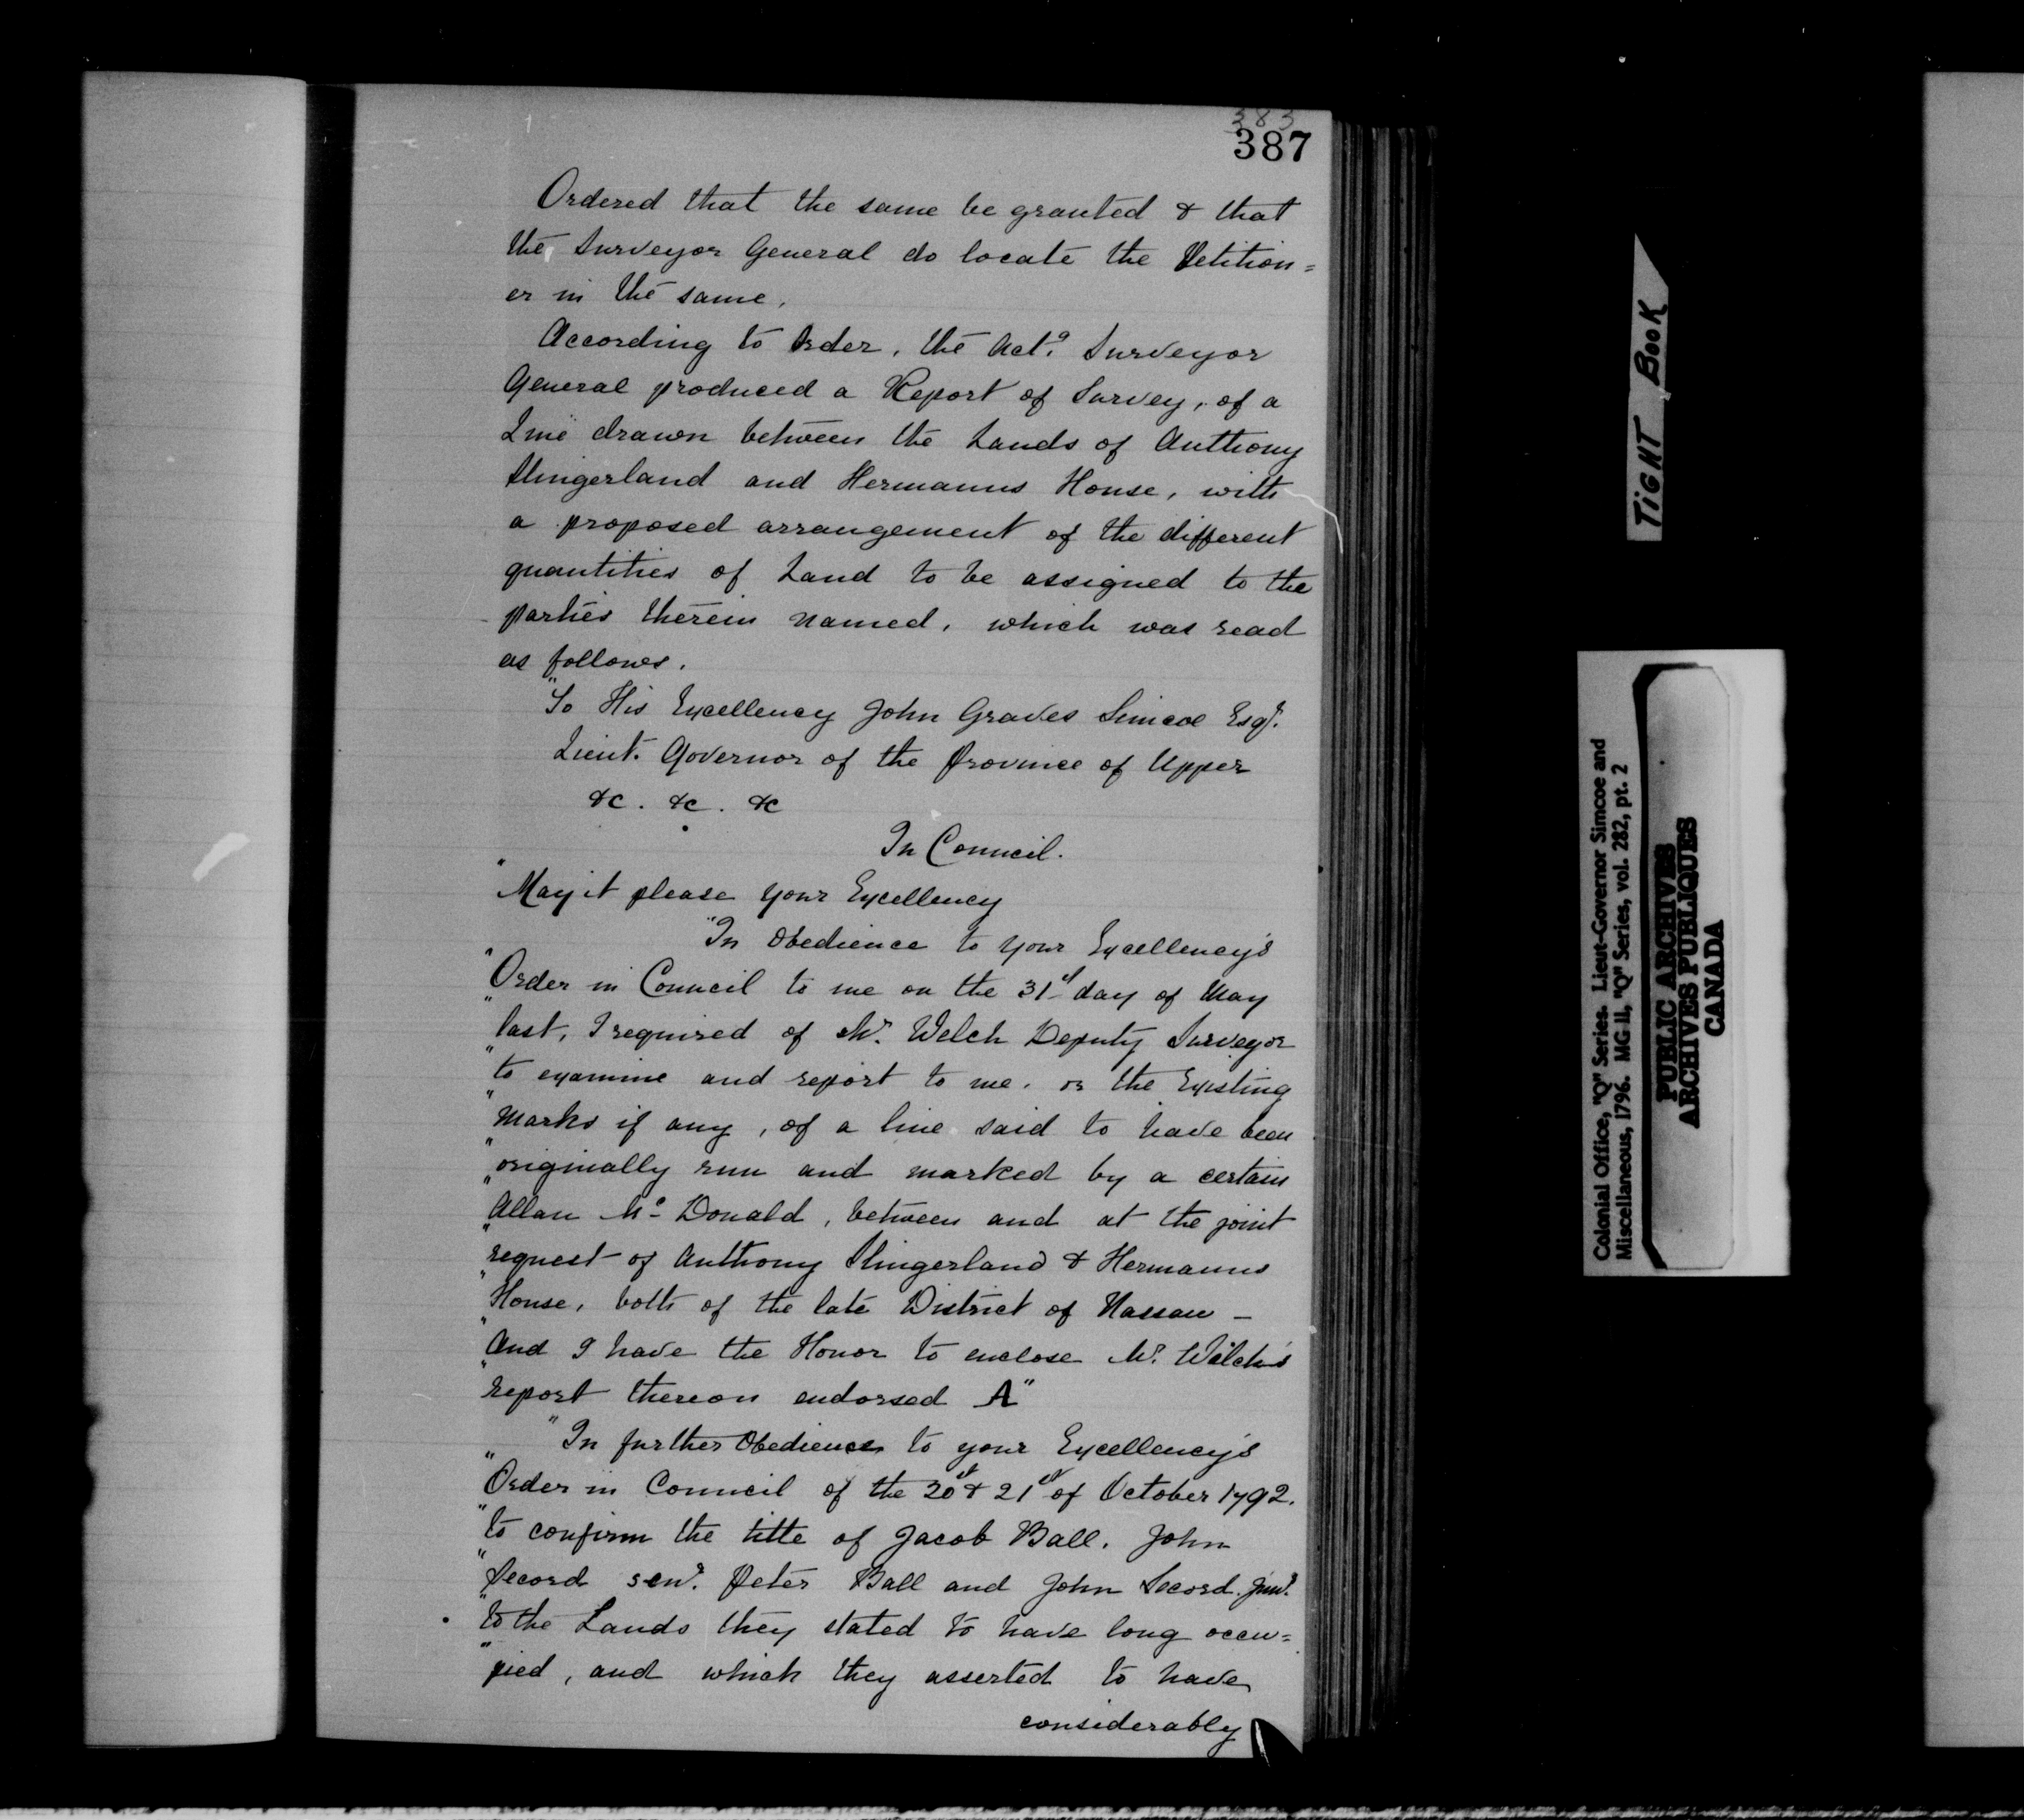 383
387
Ordered that the same be granted & that
the Surveyor General do locate the Petition=
er in the same.
According to Order, the Actg. Surveyor
General produced a Report of Survey, of a
Line drawn between the Lands of Anthony
Slingerland and Hermanus House, with
a proposed arrangement of the different
quantities of Land to be assigned to the
parties therein named, which was read
as follows.
"To His Excellency John Graves Simcoe Esqr.
Lieut. Governor of the Province of Upper
&c. &c. &c
In Council.
"May it please your Excellency
"In Obedience to your Excellency's
"Order in Council to me on the 31st day of May
"last, I required of Mr. Welch Deputy Surveyor
"to examine and report to me, on the Existing
"marks if any, of a line said to have been
"originally run and marked by a certain
"Allan Mc Donald, between and at the joint
"request of Anthony Slingerland & Hermanus
"House, both of the late District of Nassau –
"And I have the Honor to enclose Mr. Welch's
"report thereon endorsed A"
"In further Obedience to your Excellency's
"Order in Council of the 20th & 21st of October 1792.
"to confirm the title of Jacob Ball, John
"Secord senr. Peter Ball and John Secord junr.
"to the Lands they stated to have long occu=
"pied, and which they asserted to have
considerably
TIGHT BOOK
Colonial Office, "Q" Series. Lieut-Governor Simcoe and
Miscellaneous, 1796. MG 11, "Q" Series, vol. 282, pt. 2
PUBLIC ARCHIVES
ARCHIVES PUBLIQUES
CANADA